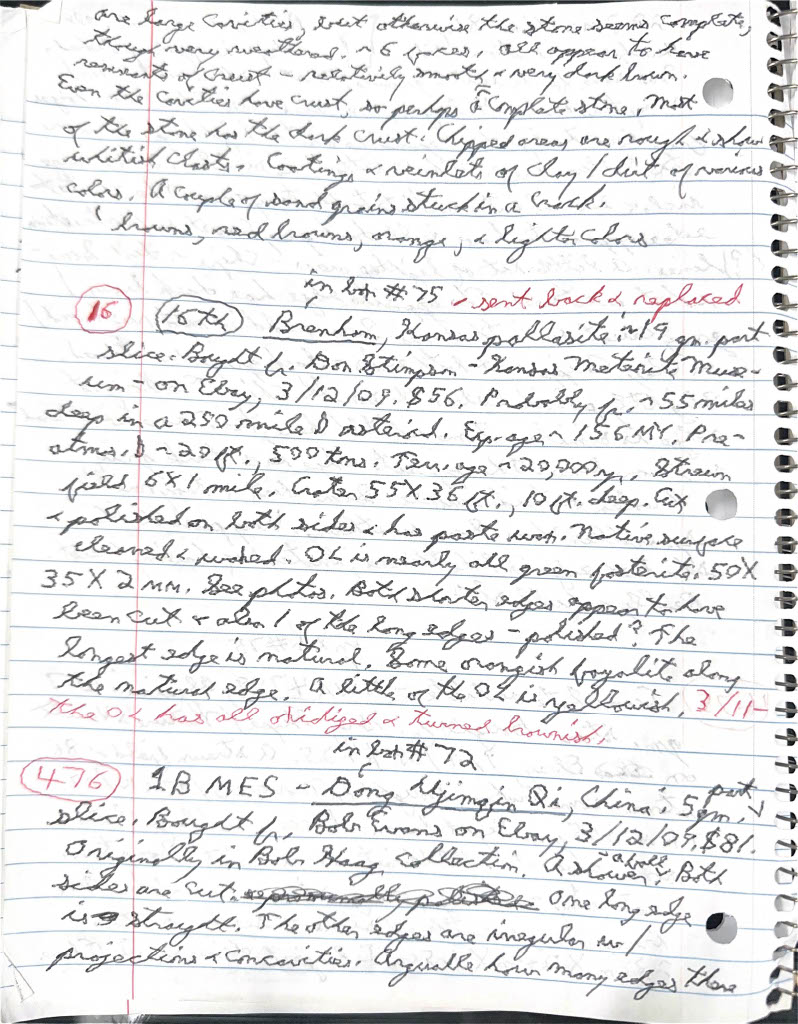 are large cavities, but otherwise the stone seems complete,
though very weathered. ~6 faces, all appear to have
remnants of crust - relatively smooth & very dark brown.
Even the cavities have crust, so perhaps a complete stone. Most
of the stone has the dark crust. Chipped areas are rough & show
whitish clasts. Coatings & veinlets of clay/dirt of various
colors. A couple of sand grains stuck in a crack.
browns, red browns, orange, & lighter colors
in box #75 - sent back & replaced
16 16th Brenham, Kansas pallasite: ~19 gm. part
slice. Bought fr. Don Stimpson - Kansas Meteorite Muse-
um - on Ebay, 3/12/09. $56. Probably fr. ~55 miles
deep in a 250 mile D asteroid. Exp. age ~ 156 MY. Pre-
atmos. D ~20 ft., 500 tons. Terr. age ~20,000 y. Strewn
field 6X1 mile. Crater 55X36 ft., 10 ft. deep. Cut
& polished on both sides & has paste wax. Native surface
cleaned & waxed. OL is nearly all green forsterite. 50X
35X2 MM. See photos. Both shorter edges appear to have
been cut & also 1 of the long edges - polished? The
longest edge is natural. Some orangish fayalite along
the natural edge. A little of the OL is yellowish. 3/11-
the OL has all oxidized & turned brownish.
in box #72
476 1B MES - Dong Ujimqin Qi, China: 5 gm. part
slice. Bought fr. Bob Evans on Ebay, 3/12/09. $81.
Originally in Bob Haag collection. A shower. Both
sides are cut. One long edge
is straight. The other edges are irregular w/
projections & concavities. Arguable how many edges there